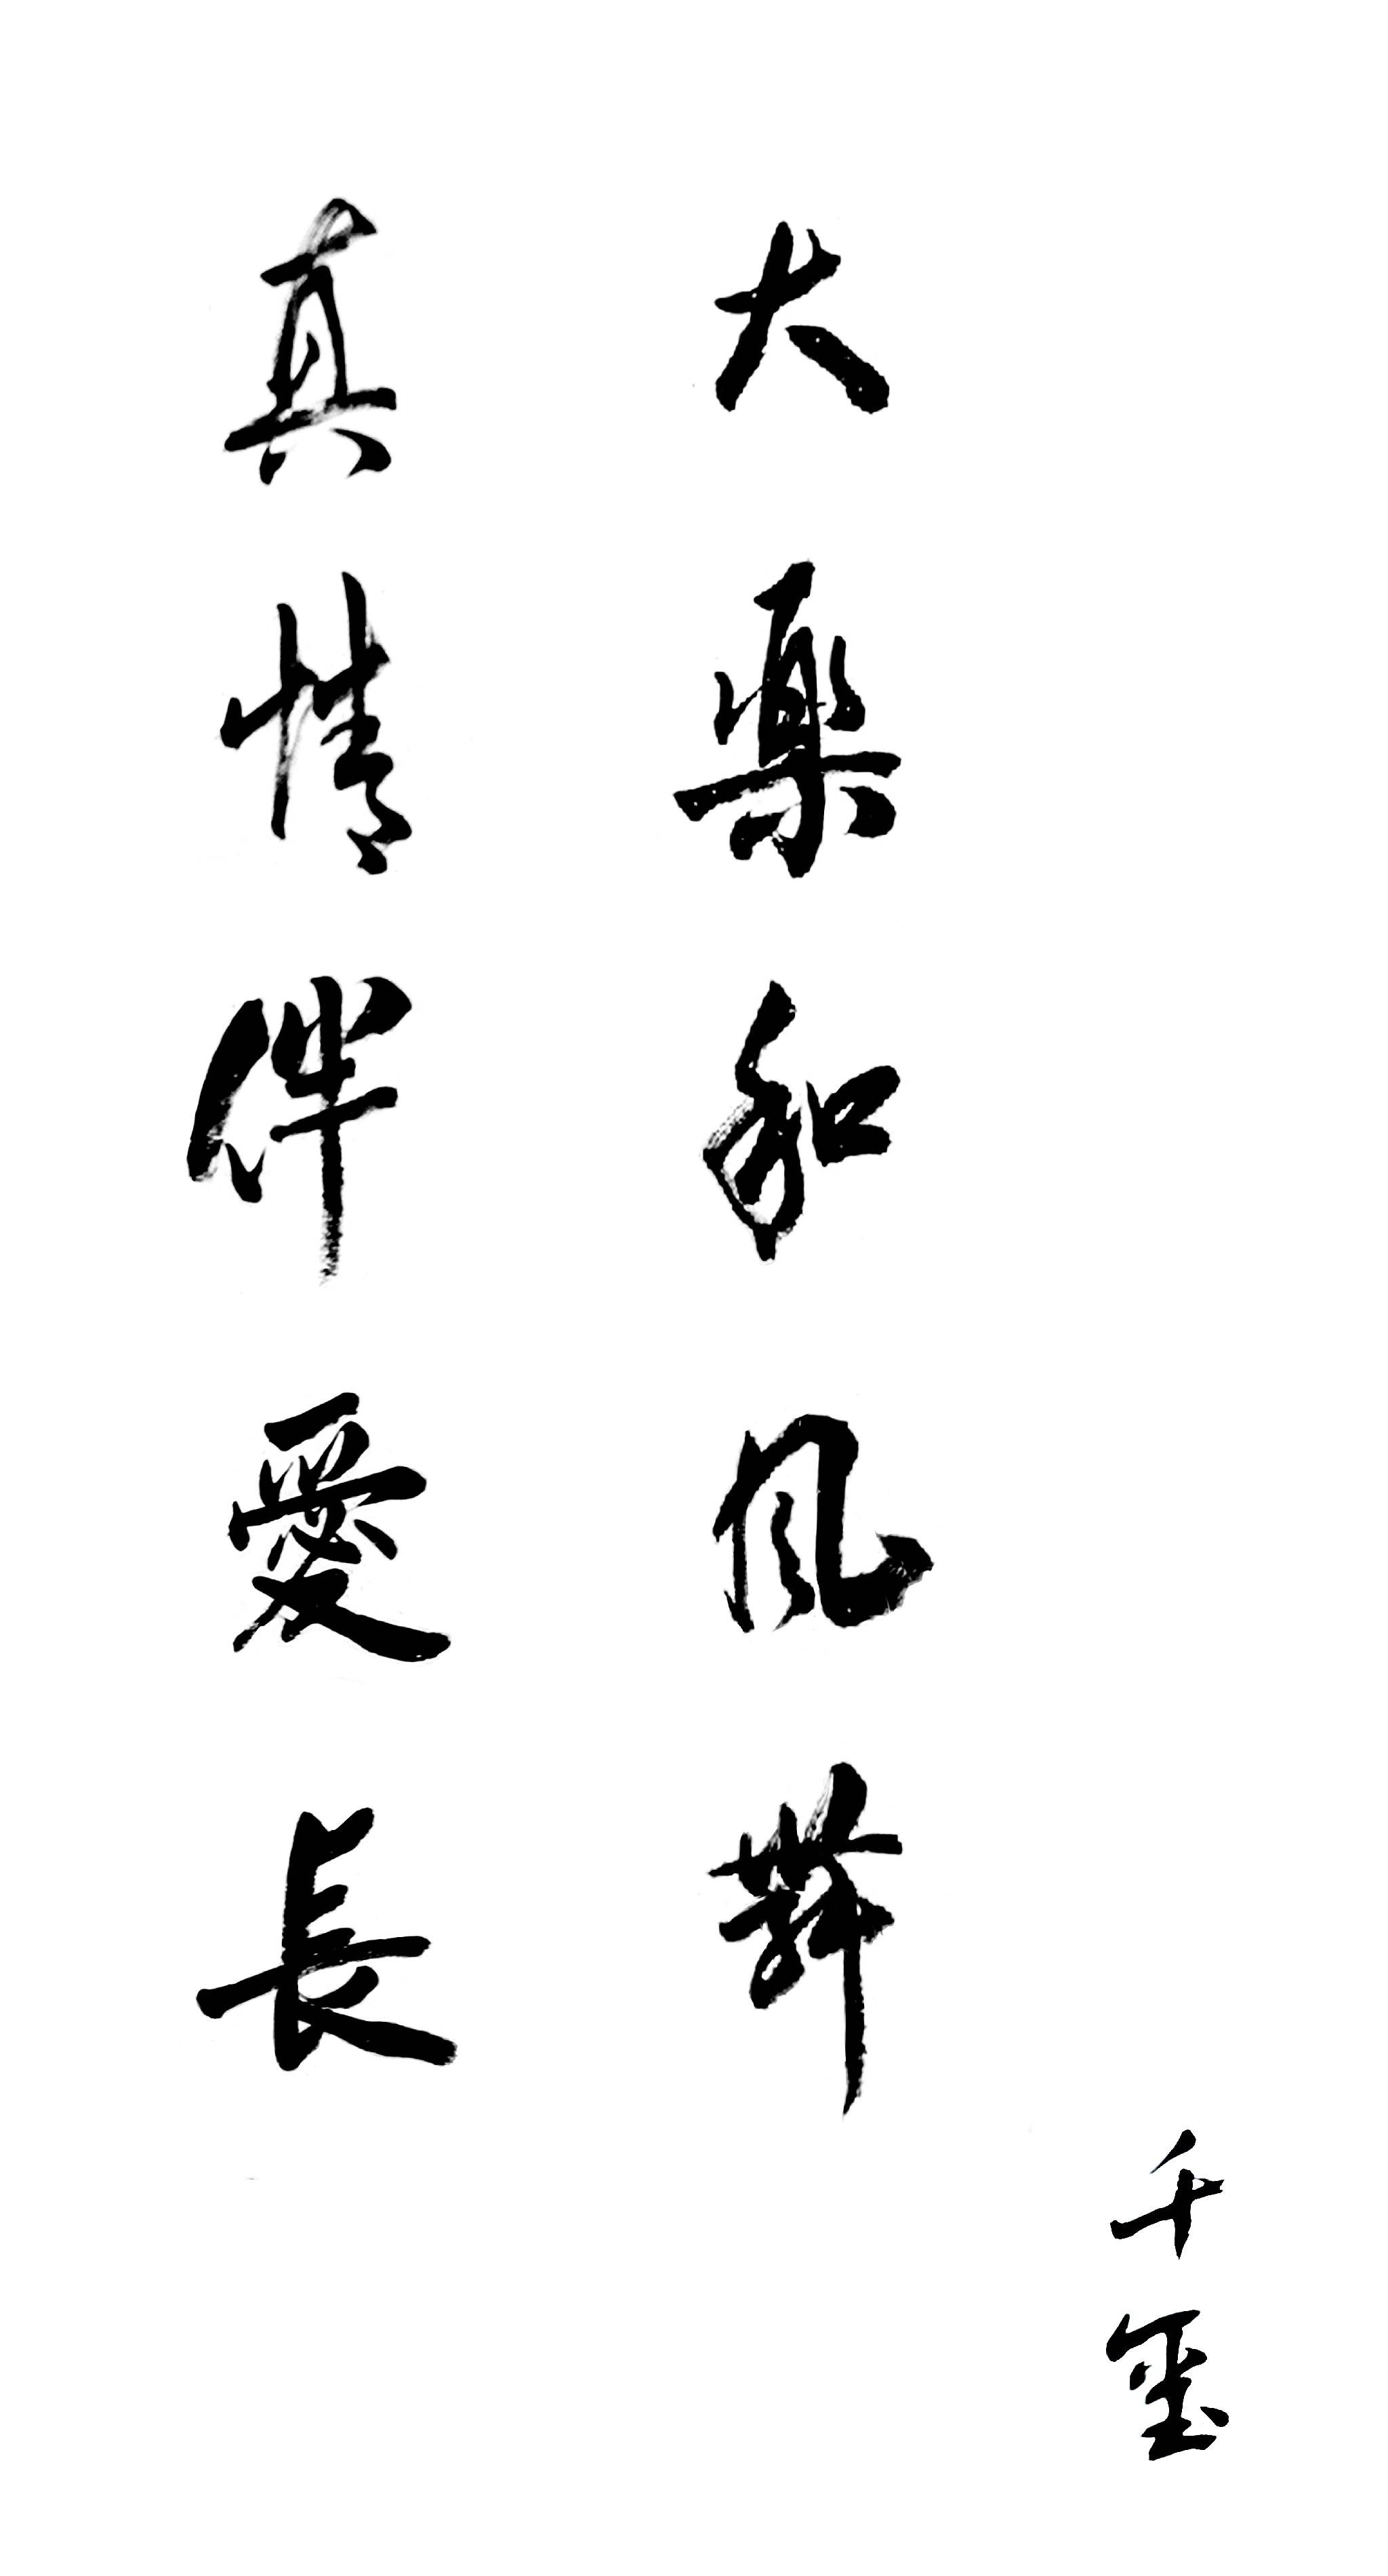 千玺
大樂和風舞
真情伴愛長